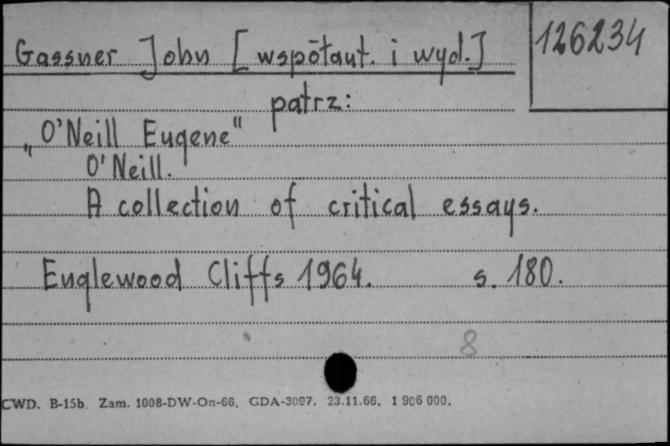 126234
Gassner John [współaut. i wyd.]
patrz:
„O'Neill Eugene"
O'Neill.
A collection of critical essays.
Englewood Cliffs 1964. s. 180.
8
CWD. B-15b. Zam. 1008-DW-On-66. GDA-3097. 23.11.66. 1 906 000.